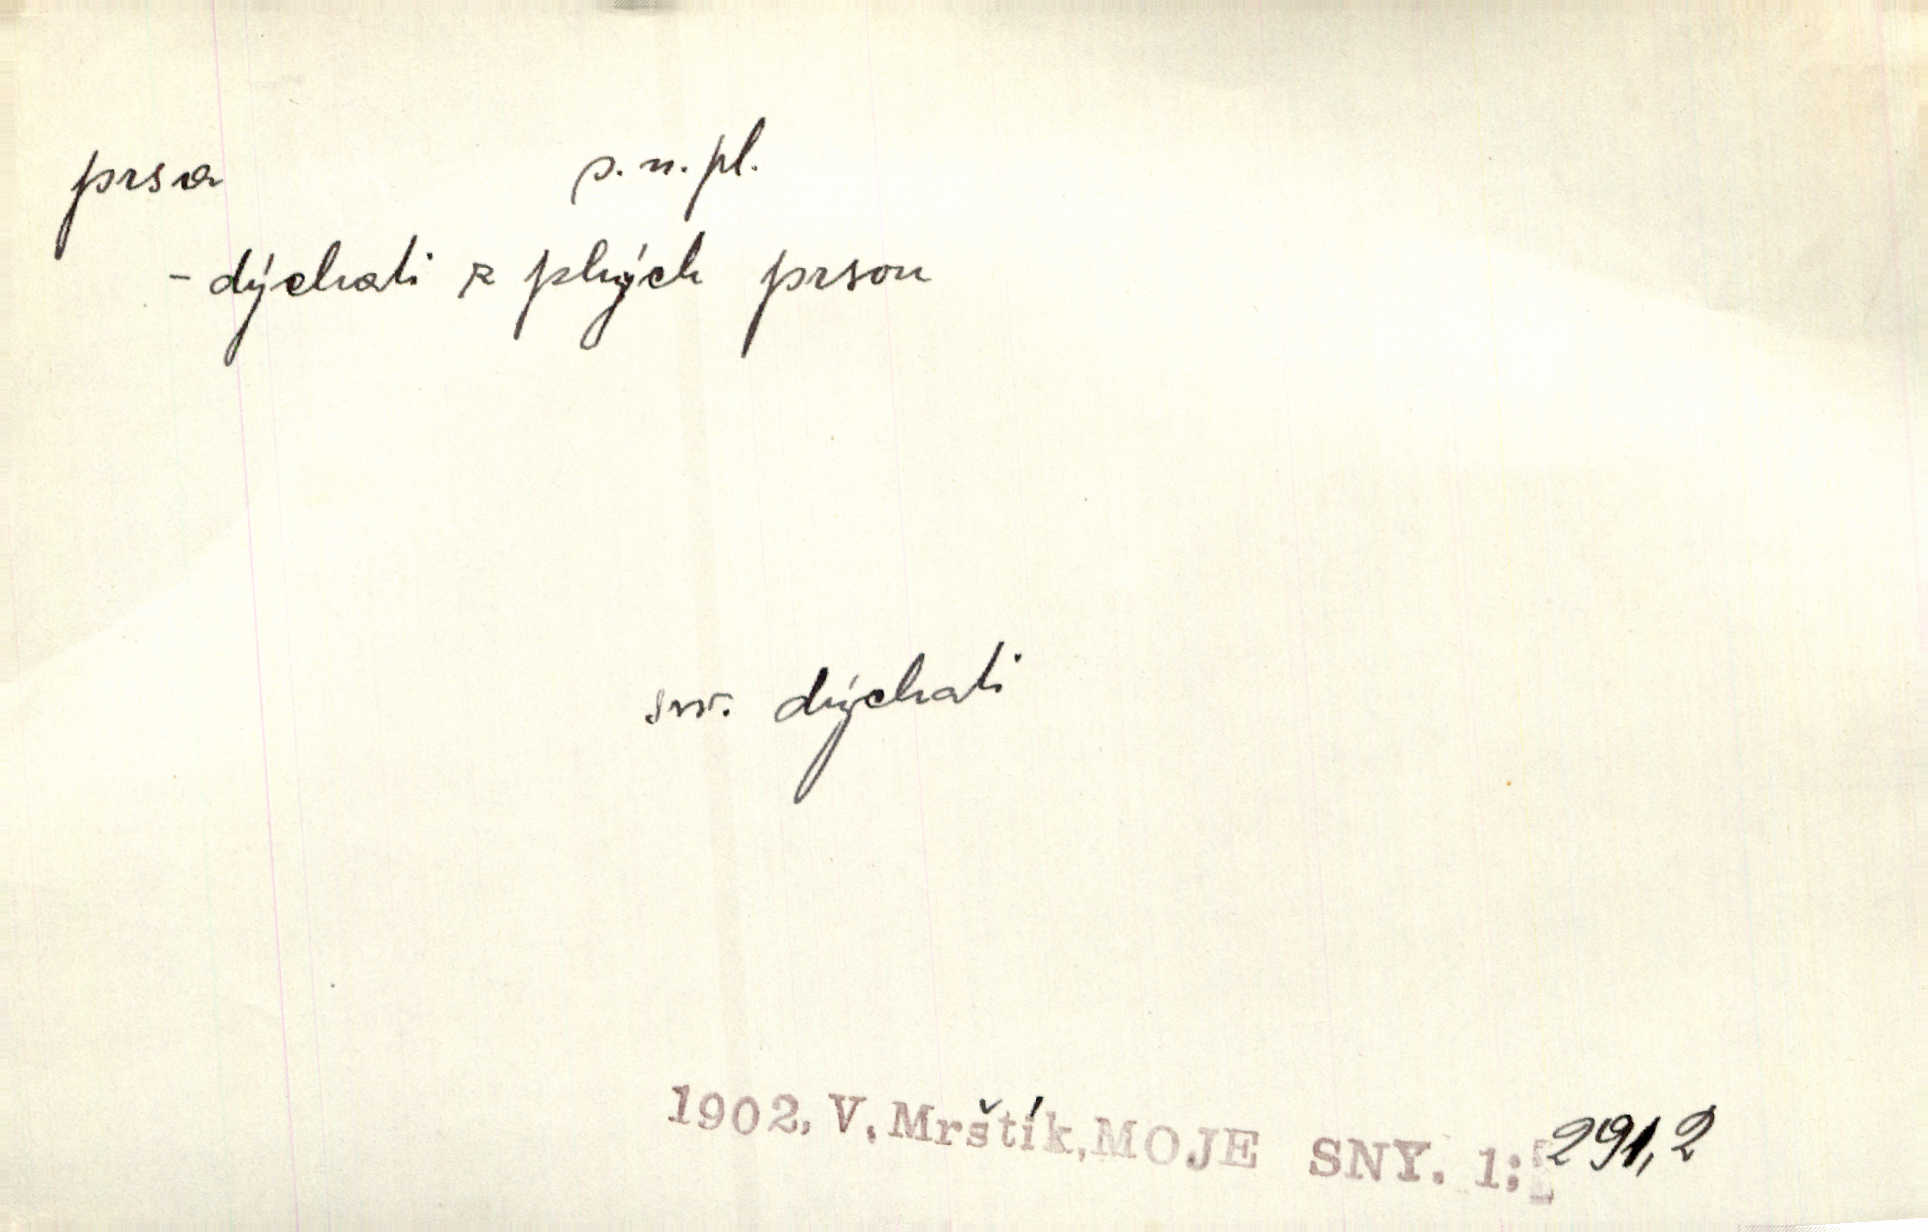 prsa s. n. pl.
- dýchati z plných prsou
srv. dýchati
1902, V. Mrštík, MOJE SNY. 1; 291,2